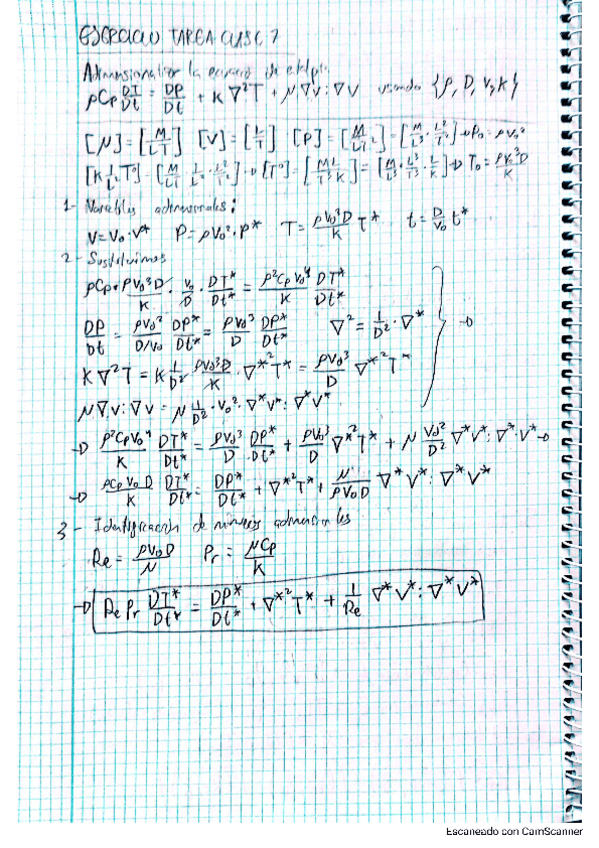 EJERCICIO TAREA CLASE 7
Adimensionalizar la ecuación de
ρCp DT/Dt = DP/Dt + K ∇²T + μ ∇v : ∇v usando {ρ, D, v₀, K}
[μ] = [M/LT] [V] = [L/T] [P] = [M/LT²] = [M/L³ · L²/T²] → P₀ = ρv₀²
[K 1/L² T°] = [M/LT · 1/L² · L²/T²] → [T°] = [ML/T³ K] = [M/L³ · L³/T³ · L/K] → T₀ = ρv₀³D/K
1- Variables adimensionales:
V = V₀ · V* P = ρV₀² · P* T = ρV₀³D/K T* t = D/V₀ t*
2- Sustituimos
ρCp · ρV₀³D/K · V₀/D · DT*/Dt* = ρ²CpV₀⁴/K DT*/Dt*
DP/Dt = ρV₀²/D/V₀ DP*/Dt* = ρV₀³/D DP*/Dt* ∇² = 1/D² · ∇* →
K ∇²T = K 1/D² · ρV₀³D/K · ∇*²T* = ρV₀³/D ∇*²T*
μ ∇v : ∇v = μ 1/D² · V₀² · ∇*V* : ∇*V*
→ ρ²CpV₀⁴/K DT*/Dt* = ρV₀³/D DP*/Dt* + ρV₀³/D ∇*²T* + μ V₀²/D² ∇*V* : ∇*V* →
→ ρCpV₀D/K DT*/Dt* = DP*/Dt* + ∇*²T* + μ/ρV₀D ∇*V* : ∇*V*
3- Identificación de números adimensionales
Re = ρV₀D/μ Pr = μCp/K
→ Re Pr DT*/Dt* = DP*/Dt* + ∇*²T* + 1/Re ∇*V* : ∇*V*
Escaneado con CamScanner